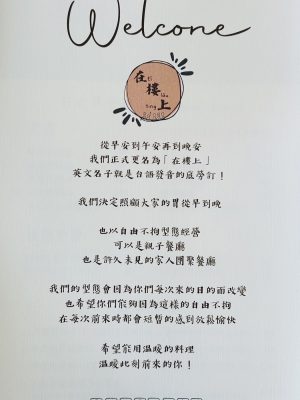 Welcome
在
樓
上
從早安到午安再到晚安
我們正式更名為「在樓上」
英文名子就是台語發音的底勞釘！
我們決定照顧大家的胃從早到晚
也以自由不拘型態經營
可以是親子餐廳
也是許久未見的家人團聚餐廳
我們的型態會因為你們每次來的目的而改變
也希望你們能夠因為這樣的自由不拘
在每次前來時都會短暫的感到放鬆愉快
希望能用溫暖的料理
溫暖此刻前來的你！